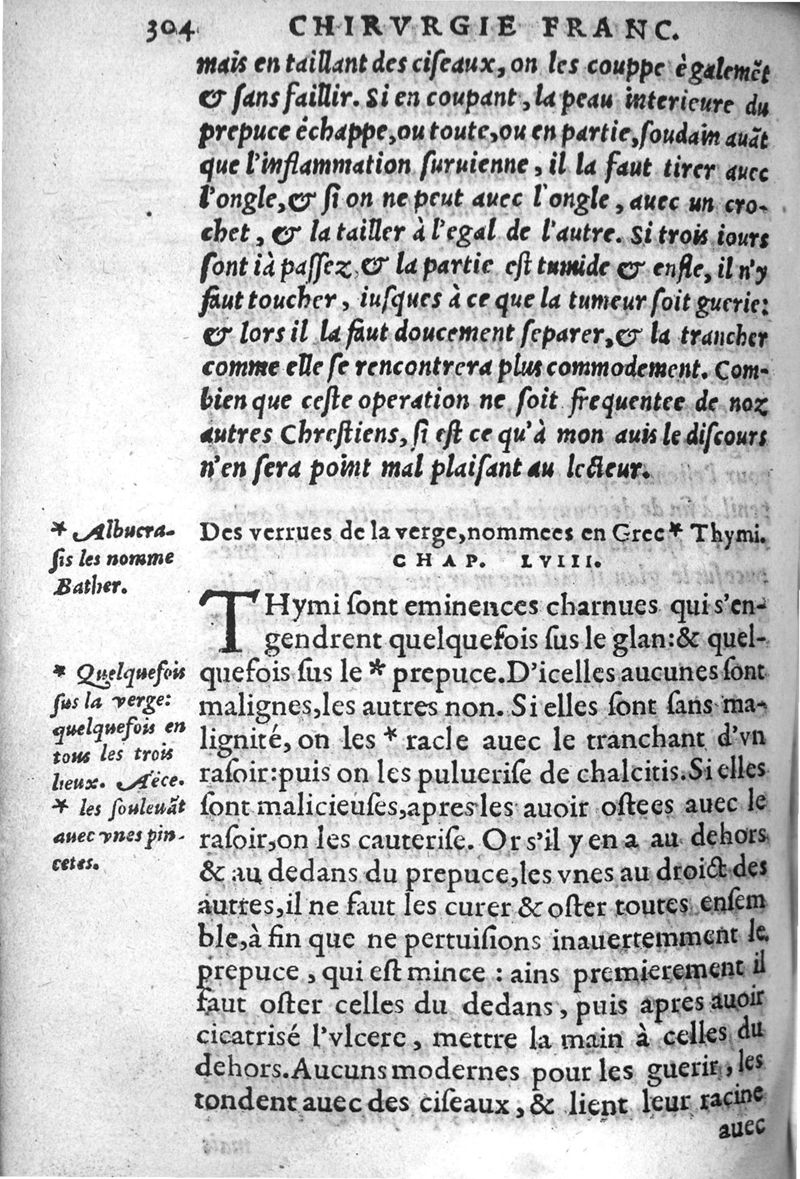 304 CHIRVRGIE FRANC.
mais en taillant des ciſeaux, on les couppe ègalemẽt
& ſans faillir. Si en coupant, la peau interieure du
prepuce échappe, ou toute, ou en partie, ſoudain auãt
que l'inflammation ſuruienne, il la faut tirer auec
l'ongle, & ſi on ne peut auec l'ongle, auec un cro-
chet, & la tailler à l'egal de l'autre. Si trois iours
ſont ià paſſez, & la partie eſt tumide & enfle, il n'y
faut toucher, iuſques à ce que la tumeur ſoit guerie:
& lors il la faut doucement ſeparer, & la trancher
comme elle ſe rencontrera plus commodement. Com-
bien que ceſte operation ne ſoit frequentee de noz
autres Chreſtiens, ſi eſt ce qu'à mon auis le diſcours
n'en ſera point mal plaiſant au lecteur.
* Albucra-
ſis les nomme
Bather.
Des verrues de la verge, nommees en Grec * Thymi.
CHAP. LVIII.
THymi ſont eminences charnues qui s'en-
gendrent quelquefois ſus le glan: & quel-
quefois ſus le * prepuce. D'icelles aucunes ſont
malignes, les autres non. Si elles ſont ſans ma-
lignité, on les * racle auec le tranchant d'vn
raſoir: puis on les puluerise de chalcitis. Si elles
ſont malicieuſes, apres les auoir oſtees auec le
raſoir, on les cauteriſe. Or s'il y en a au dehors
& au dedans du prepuce, les vnes au droict des
autres, il ne faut les curer & oſter toutes enſem
ble, à fin que ne pertuiſions inauertemment le
prepuce, qui eſt mince: ains premierement il
faut oſter celles du dedans, puis apres auoir
cicatrisé l'vlcere, mettre la main à celles du
dehors. Aucuns modernes pour les guerir, les
tondent auec des ciſeaux, & lient leur racine
auec
* Quelquefois
ſus la verge:
quelquefois en
tous les trois
lieux. Aëce.
* les ſouleuãt
auec vnes pin-
cetes.